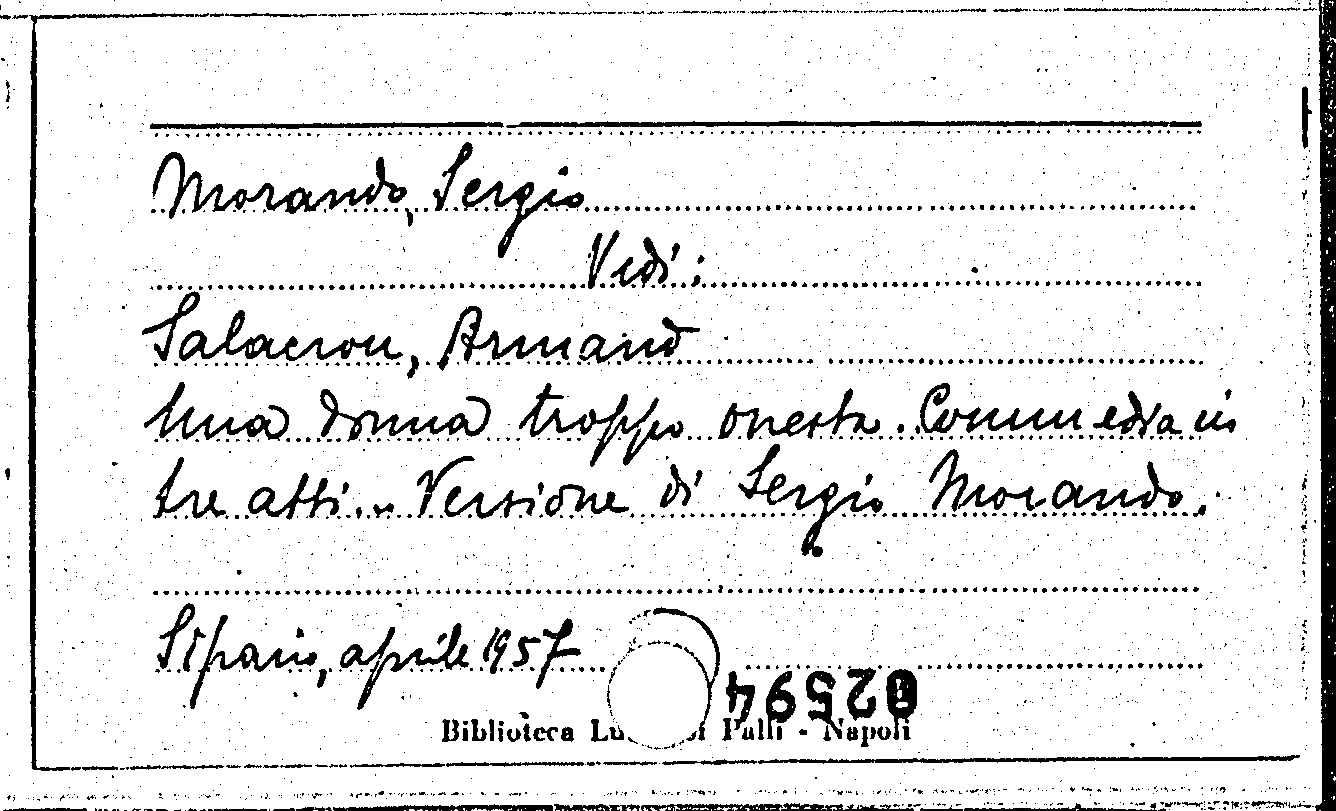 Morando, Sergio
Vedi:
Salacrou, Armand
Una donna troppo onesta. Commedia in
tre atti... Versione di Sergio Morando.
Sipario, aprile 1957
02594
Biblioteca Lu Palli - Napoli